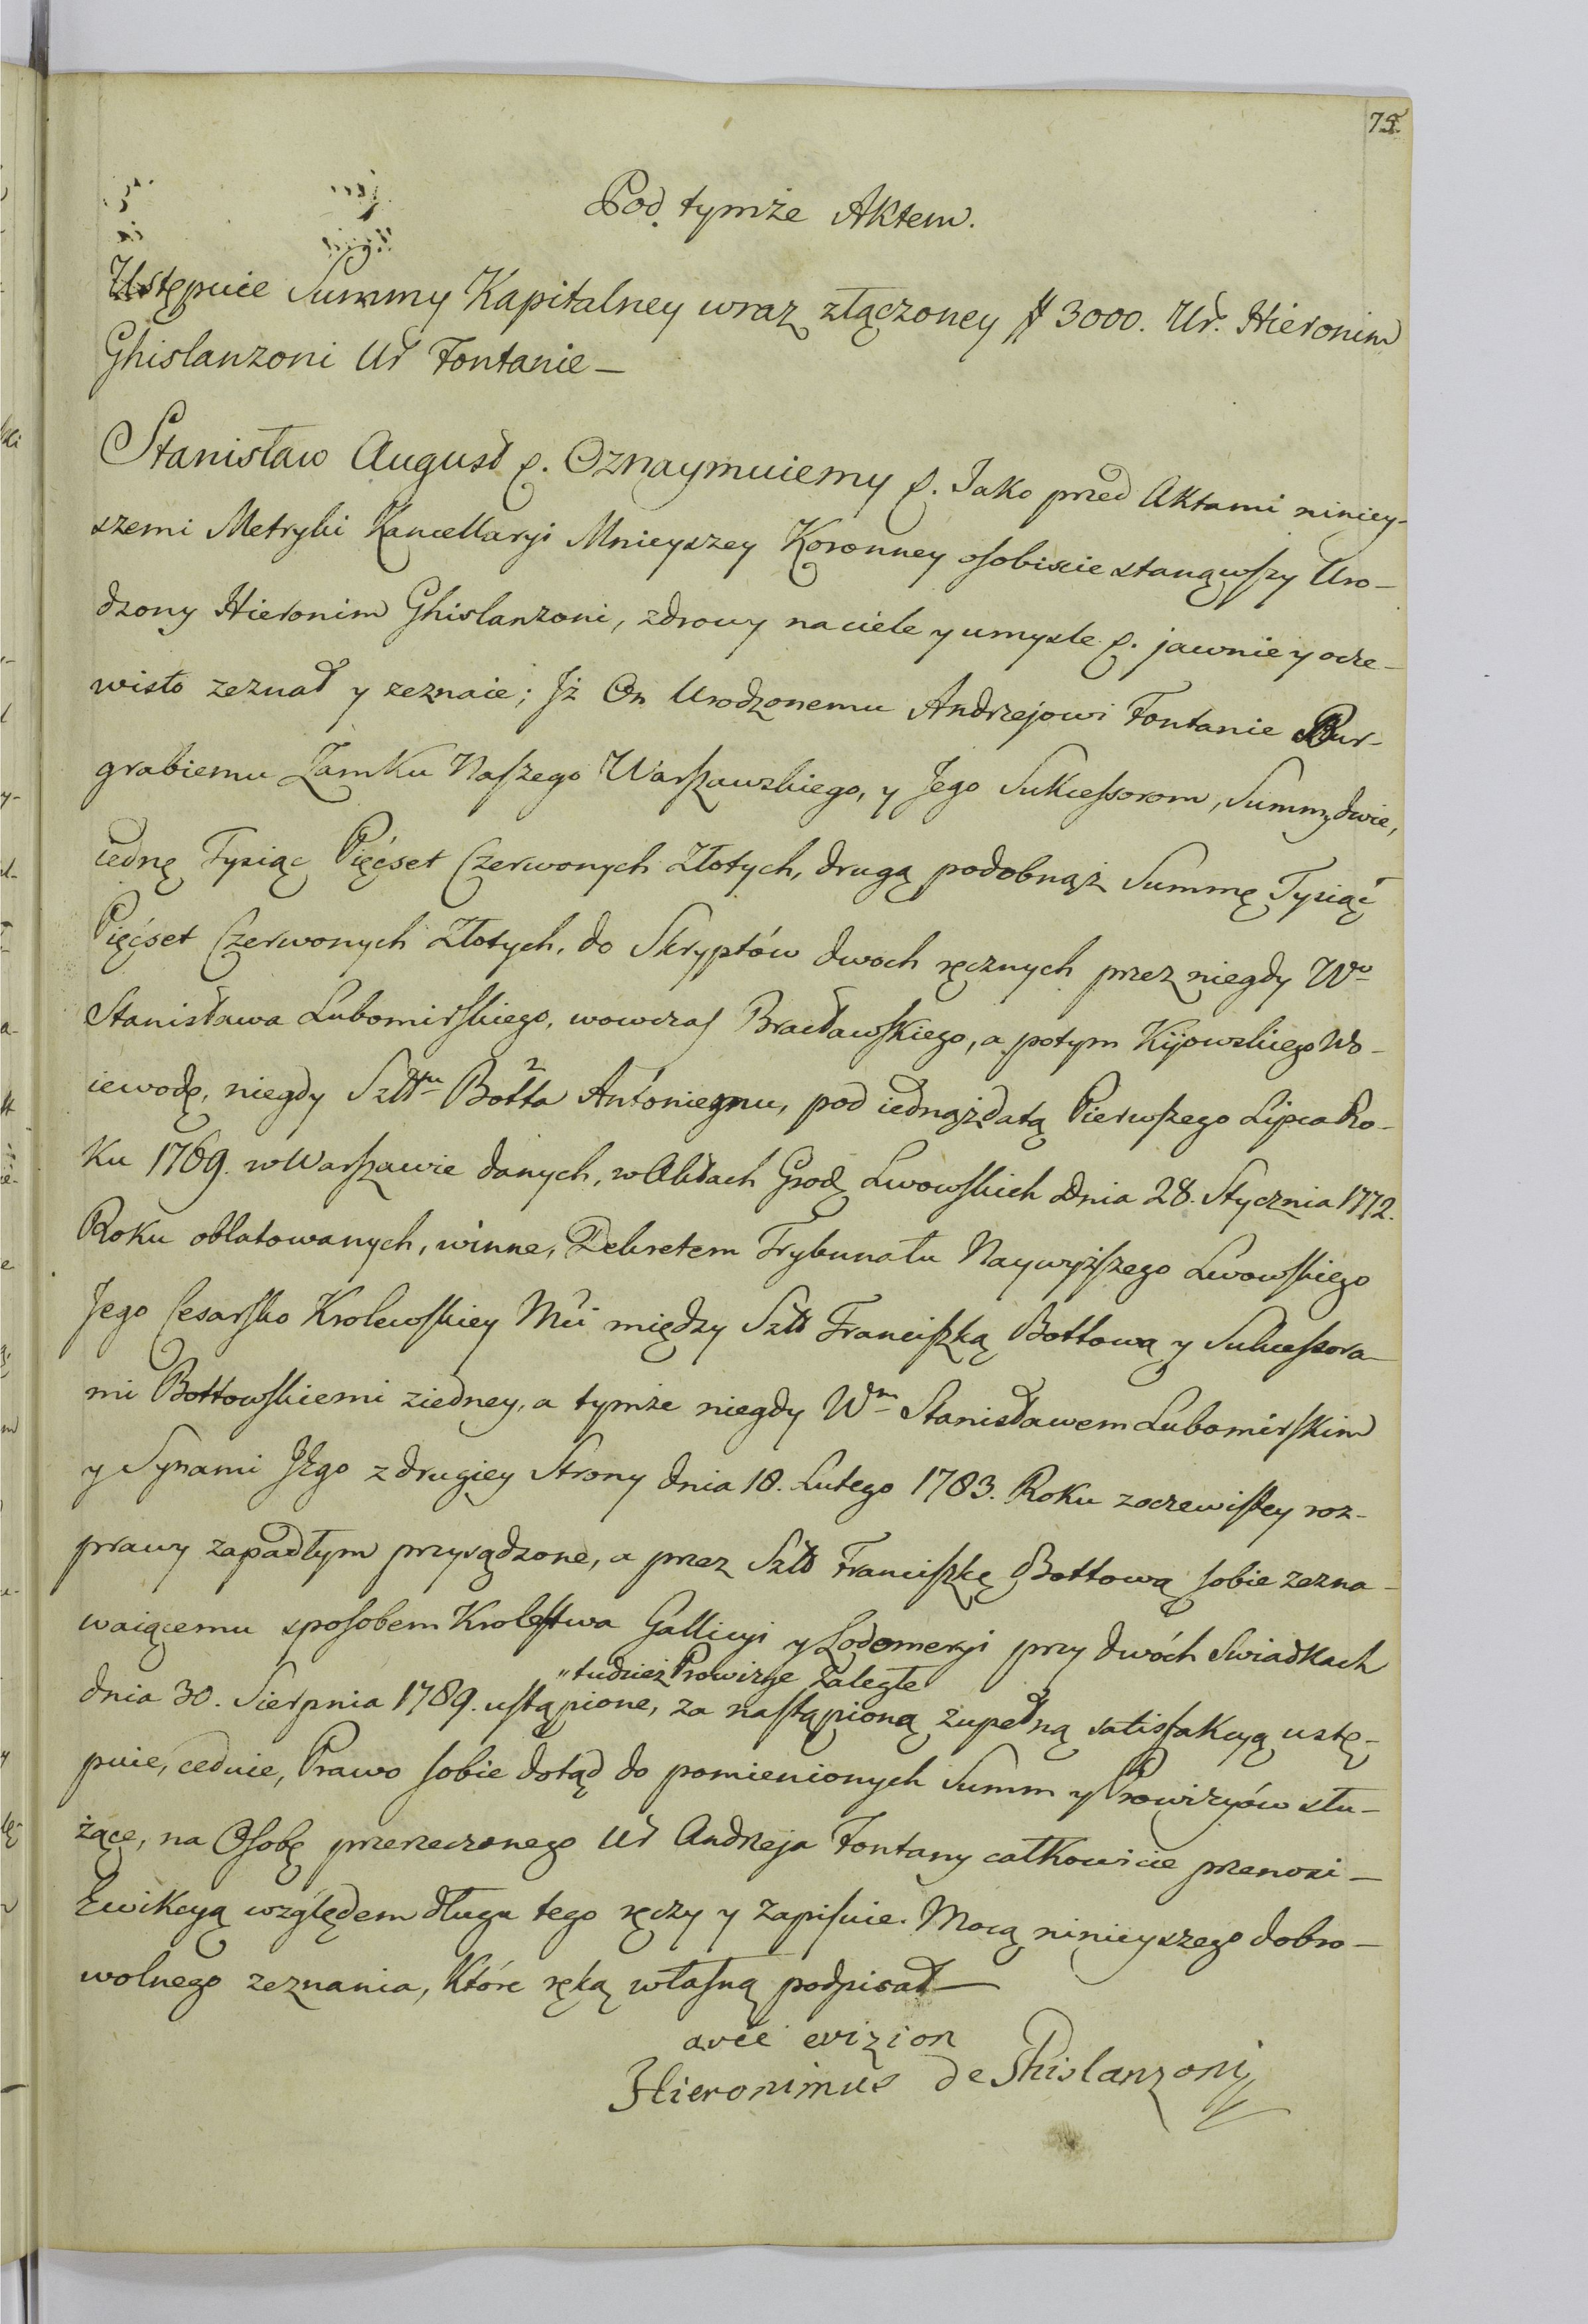 75.
Pod tymże Aktem.
Ustępuie Summy Kapitalney wraz złączoney # 3000. Ur. Hieronim
Ghislanzoni Ur Fontanie —
Stanisław August &. Oznaymuiemy &. Jako przed Aktami niniey-
szemi Metryki Kancellaryi Mnieyszey Koronney osobiscie stanąwszy Uro-
dzony Hieronim Ghislanzoni, zdrowy na ciele y umysle &. jawnie y ocze-
wisto zeznał y zeznaie; Jż On Urodzonemu Andrzejowi Fontanie Bur-
grabiemu Zamku Naszego Warszawskiego, y Jego Sukcessorom, Summy dwie,
iednę Tysiąc Pięćset Czerwonych Złotych, drugą podobnąż Summę Tysiąc
Pięćset Czerwonych Złotych, do Skryptów dwoch ręcznych przez niegdy Wo
Stanisława Lubomirskiego, wowczas Bracławskiego, a potym Kijowskiego Wo-
iewodę, niegdy Szltmu Botta Antoniemu, pod iednąż datą Pierwszego Lipca Ro-
ku 1769. w Warszawie danych, w Aktach Grod Lwowskich dnia 28. Stycznia 1772.
Roku oblatowanych, winne, Dekretem Trybunału Naywyższego Lwowskiego
Jego Cesarsko Krolewskiey Mci między Szlt Franciszką Bottową y Sukcessora-
mi Bottowskiemi z iedney, a tymże niegdy Wm Stanisławem Lubomirskim
y Synami Jego z drugiey Strony dnia 18. Lutego 1783. Roku z oczewistey roz-
prawy zapadłym przysądzone, a przez Szlt Franciszkę Bottową sobie zezna-
waiącemu sposobem Krolestwa Gallicyi y Lodomeryi przy dwóch Swiadkach
" tudzież Prowizye Zaległe
dnia 30. Sierpnia 1789. ustąpione, za nastąpioną zupełną satisfakcyą ustę-
puie, ceduie, Prawo sobie dotąd do pomienionych Summ y Prowizyów słu-
żące, na Osobę przerzeczonego Ur Andrzeja Fontany całkowicie przenosi —
Ewikcyą względem długu tego ręczy y Zapisuie. Mocą ninieyszego dobro-
wolnego zeznania, które ręką własną podpisał —
avec evizion
Hieronimus de Ghislanzoni